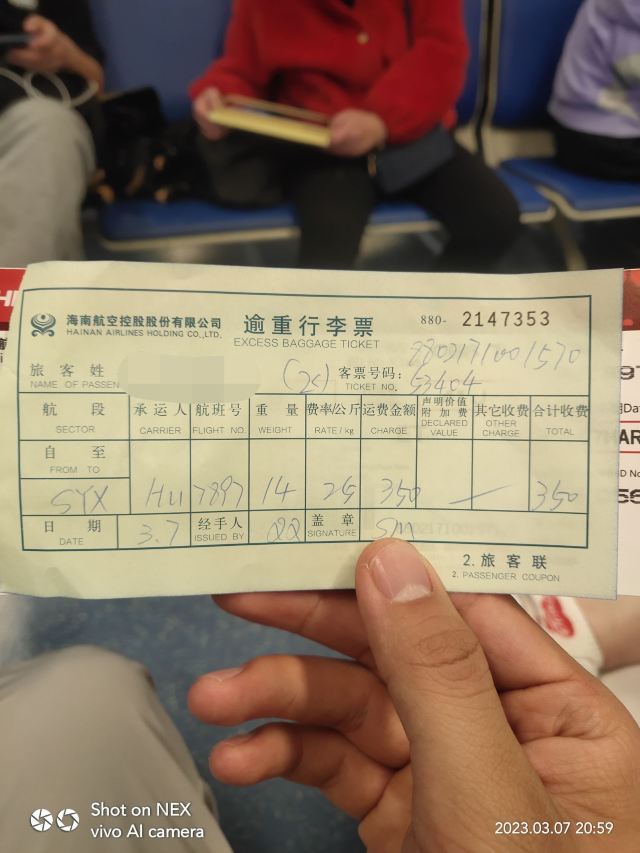 海南航空控股股份有限公司
HAINAN AIRLINES HOLDING CO.,LTD.
逾重行李票
EXCESS BAGGAGE TICKET
880- 2147353
旅客姓
NAME OF PASSEN
(25)
客票号码:
TICKET NO.
8802171001570
53404
航段 承运人 航班号 重量 费率/公斤 运费金额 声明价值附加费 其它收费 合计收费
SECTOR CARRIER FLIGHT NO. WEIGHT RATE / kg CHARGE DECLARED VALUE OTHER CHARGE TOTAL
自 至
FROM TO
SYX HU 7897 14 25 350 — 350
日期 3.7 经手人 盖章
DATE ISSUED BY SIGNATURE
2.旅客联
2. PASSENGER COUPON
Shot on NEX
vivo AI camera
2023.03.07 20:59